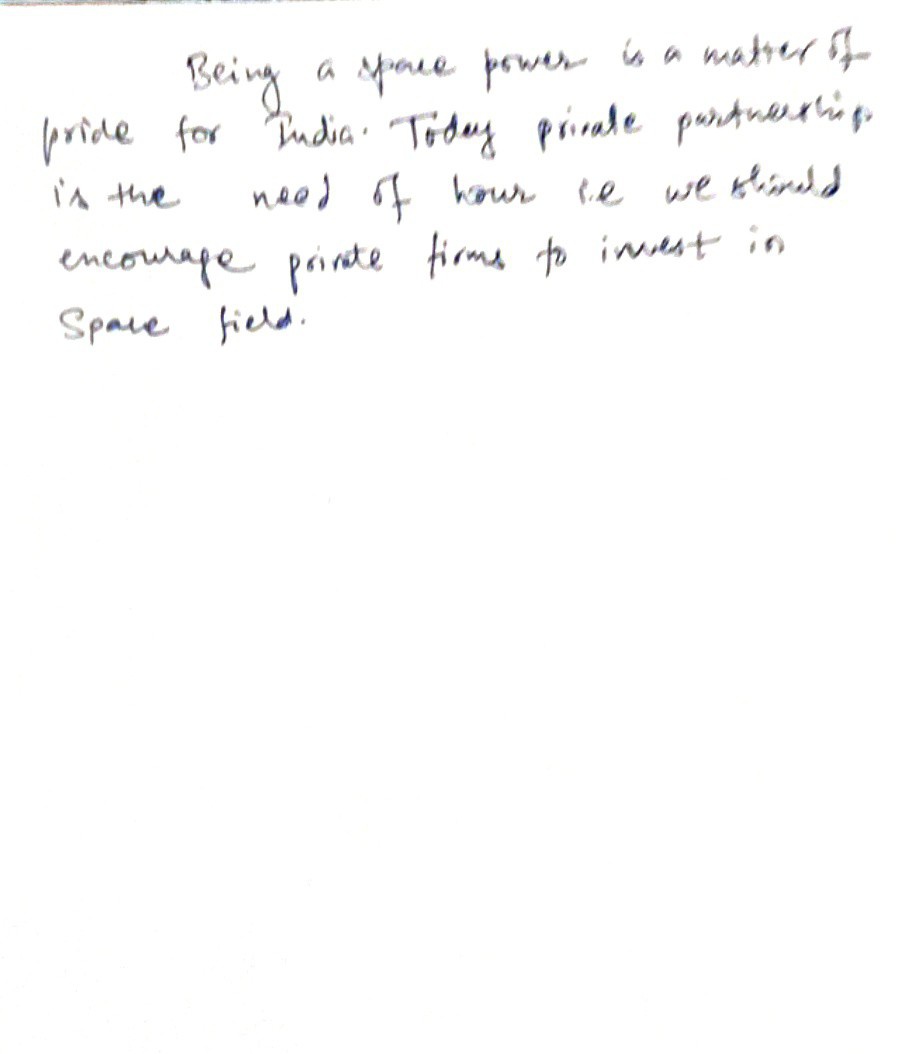 Being a space power is a matter of
pride for India. Today private partnership
is the need of hour i.e we should
encourage private firms to invest in
Space field.